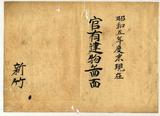 昭和五年度末現在
官有建物畨面
新竹